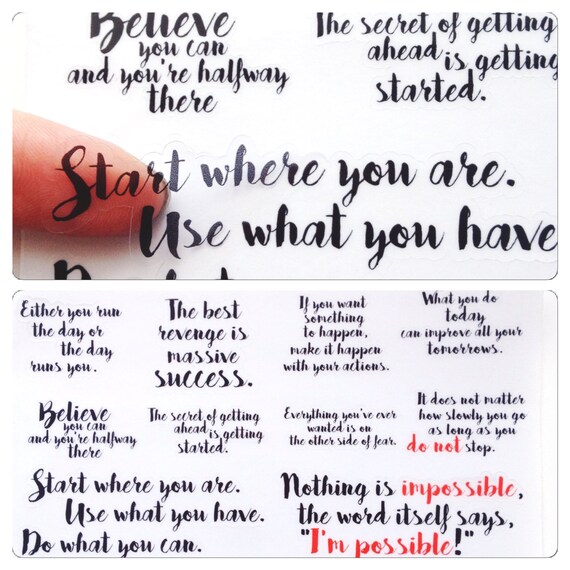 Believe
you can
and you're halfway
there
The secret of getting
ahead is getting
started.
Start where you are.
Use what you have
Either you run
the day or
the day
runs you.
The best
revenge is
massive
success.
If you want
something
to happen,
make it happen
with your actions.
What you do
today
can improve all your
tomorrows.
Believe
you can
and you're halfway
there
The secret of getting
ahead is getting
started.
Everything you've ever
wanted is on
the other side of fear.
It does not matter
how slowly you go
as long as you
do not stop.
Start where you are.
Use what you have.
Do what you can.
Nothing is impossible,
the word itself says,
"I'm possible!"